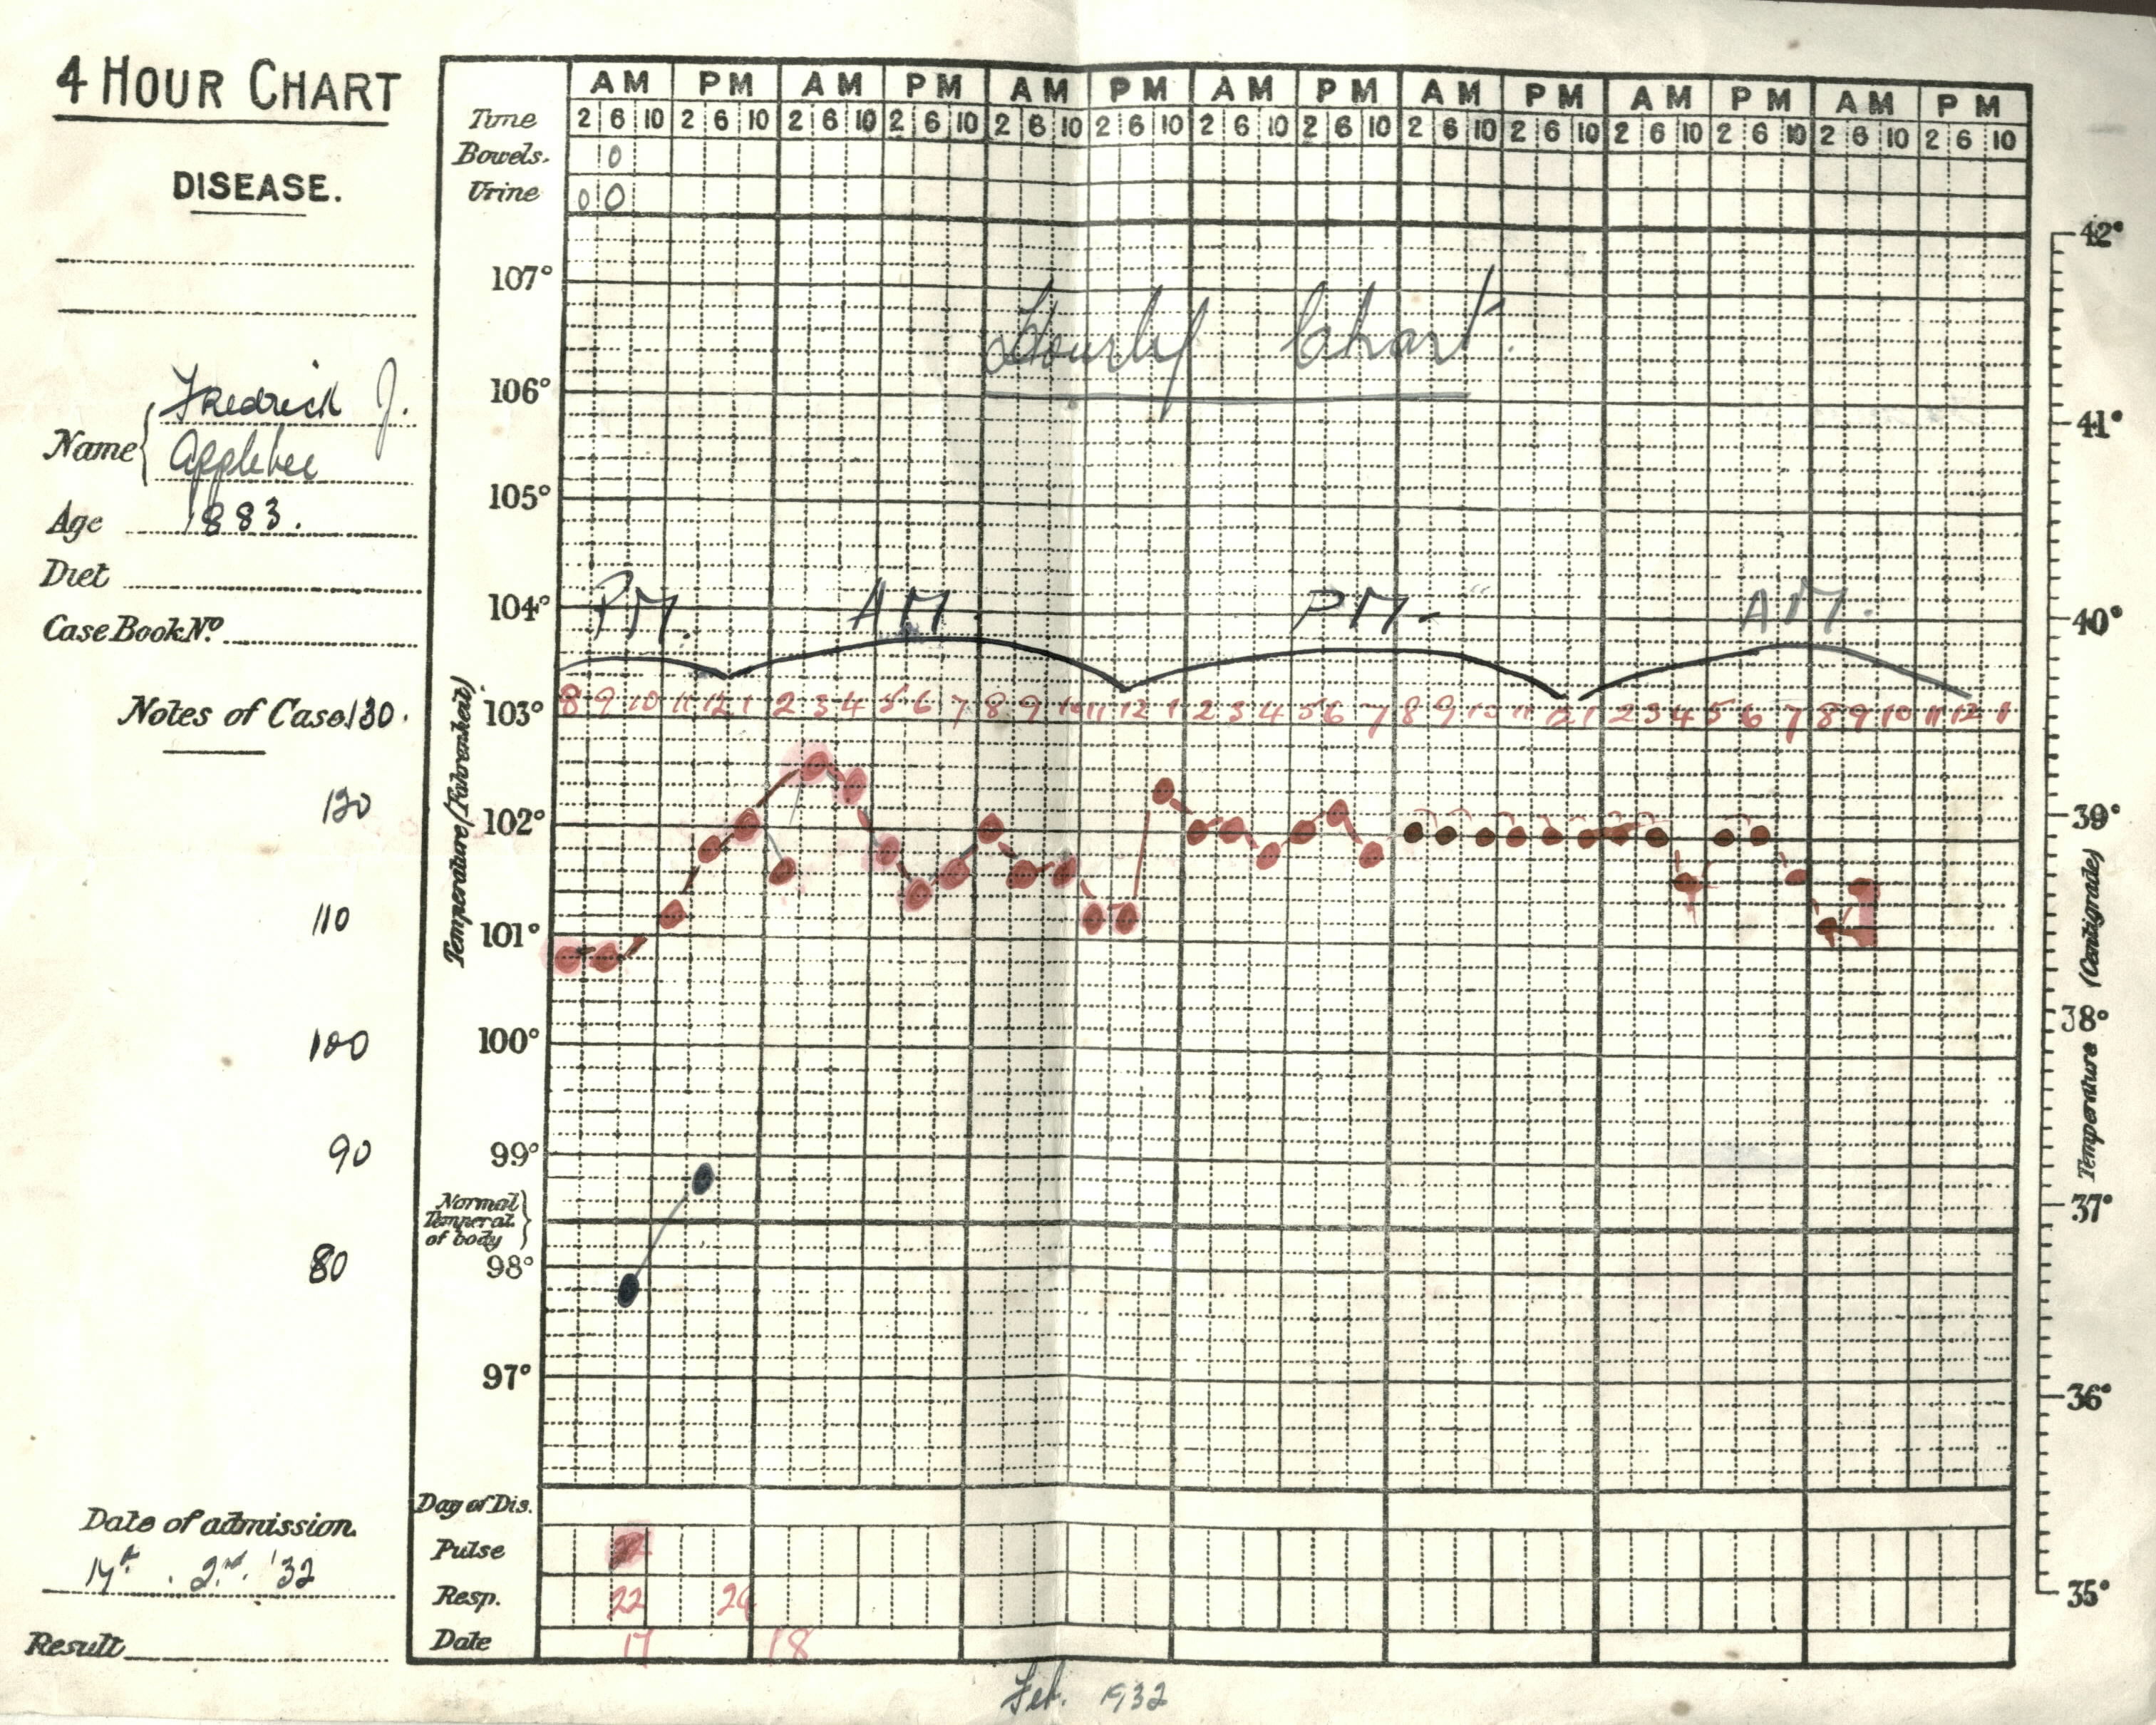 4 HOUR CHART
DISEASE.
Name { Fredrick J.
Applebee
Age 1883.
Diet
Case Book Nº
Notes of Case 130.
130
110
100
90
80
Date of admission
17th . 2nd. '32
Result
AM PM AM PM AM PM AM PM AM PM AM PM AM PM
Time 2 6 10 2 6 10 2 6 10 2 6 10 2 6 10 2 6 10 2 6 10 2 6 10 2 6 10 2 6 10 2 6 10 2 6 10 2 6 10 2 6 10
Bowels. 0
Urine 0 0
107°
Hourly Chart.
106°
105°
104°
PM. AM. PM. AM.
8 9 10 11 12 1 2 3 4 5 6 7 8 9 10 11 12 1 2 3 4 5 6 7 8 9 10 11 12 1 2 3 4 5 6 7 8 9 10 11 12 1
103°
102°
101°
100°
99°
98°
97°
Temperature (Fahrenheit)
Normal
Temperat.
of body }
Day of Dis.
Pulse
Resp. 22 24
Date 17 18
Feb. 1932
42°
41°
40°
39°
38°
37°
36°
35°
Temperature (Centigrade)